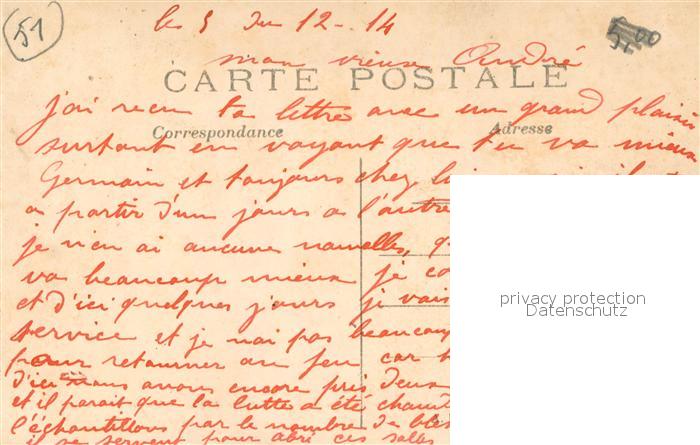 51
5,00
les 5 du 12-14
mon vieux André
CARTE POSTALE
j'ai recu ta lettre avec un grand plaisir
Correspondance Adresse
surtout en voyant que tu va mieux
Germain et toujours chez
a partir d'un jours a l'autre
je n'en ai aucune nouvelles,
va beaucoup mieux je
et d'ici quelques jours je vais
service et je nai pas beaucoup
pour retourner au feu car
d'ici nous avons encore pris deux
et il parait que la lutte a été
l'échantillons par le nombre de
il se servent pour abri ces
privacy protection
Datenschutz